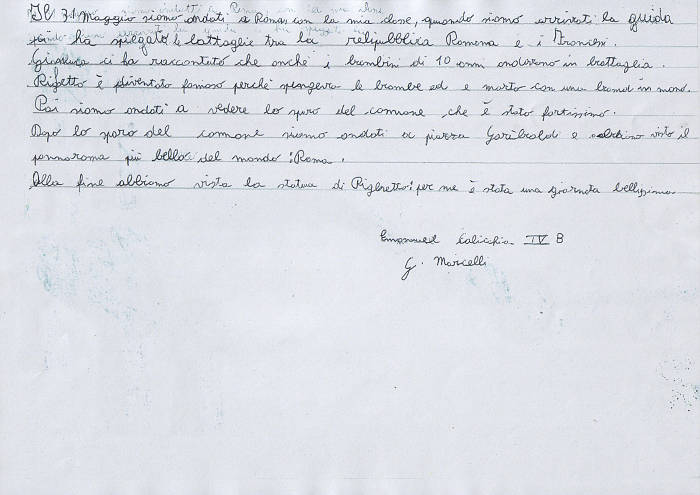 Il 31 Maggio siamo andati a Roma con la mia classe, quando siamo arrivati la guida
ci ha spiegato le battaglie tra la relipubblica Romena e i Francesi.
Gianluca ci ha raccontato che anche i bambini di 10 anni andavano in battaglia.
Righetto è diventato famoso perchè spegneva le bombe ed e morto con una bomba in mano.
Poi siamo andati a vedere lo sparo del cannone, che è stato fortissimo.
Dopo lo sparo del cannone siamo andati a piazza Garibaldi e abbiamo visto il
pannorama più bello del mondo: Roma.
Alla fine abbiamo vista la statua di Righetto: per me è stata una giornata bellissima.
Emanuel Calicchia IV B
G. Marcelli